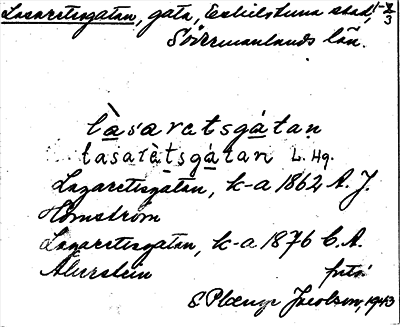 Lasarettsgatan, gata, Eskilstuna stad, 1-2/3
Södermanlands län.
làsaretsgátan
lasarètsgátan L. Hg.
Lazaretsgatan, k-a 1862 A. J.
Hornström
Lazaretsgatan, k-a 1876 C. A.
foto:
Jacobson, 1943